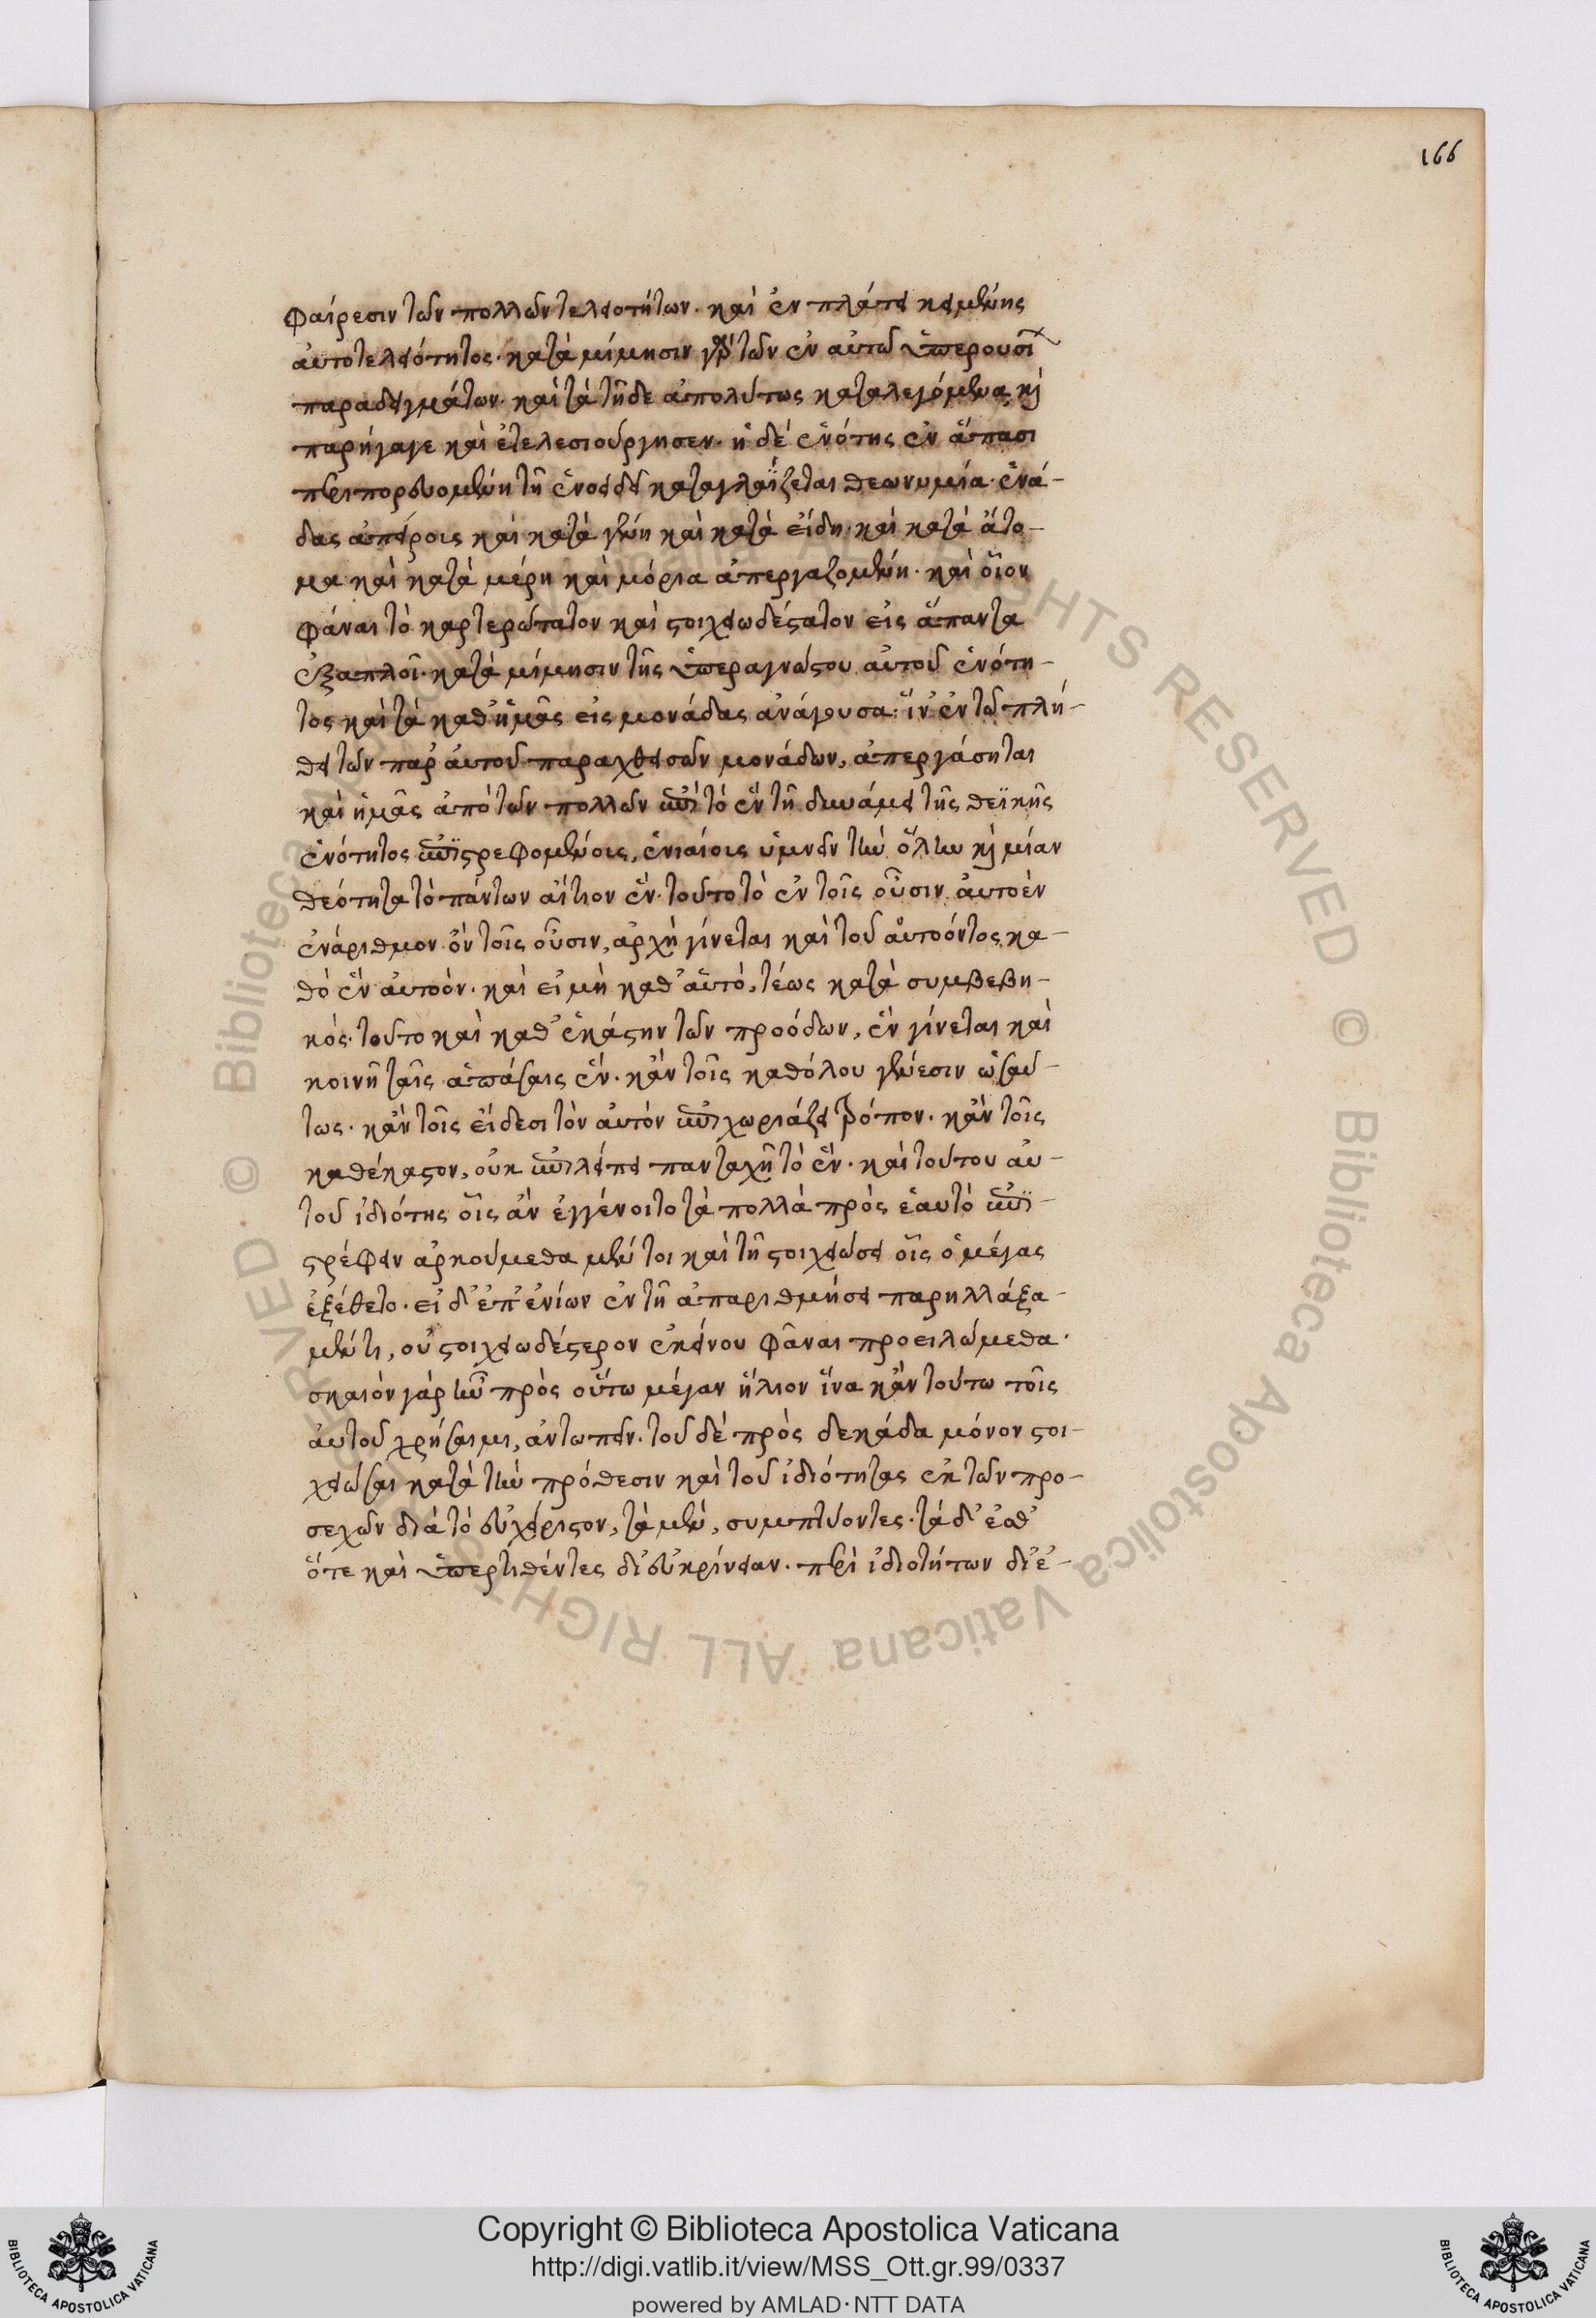 166
φαίρεσιν τῶν πολλῶν τελειοτήτων. καὶ ἐν πλάτει κειμένης
αὐτοτελειότητος. κατὰ μίμησιν γὰρ τῶν ἐν αὐτῷ ὑπερουσί
παραδειγμάτων. καὶ τὰ τῇδε ἀπολύτως καταλεγόμενα καὶ
παρήγαγε καὶ ἐτελεσιούργησεν. ἡ δὲ ἑνότης ἐν ἅπασι
περιπορευομένη τῇ ἑνοειδεῖ καταγλαΐζεται θεωνυμία. ἑνά-
δας ἀπείροις καὶ κατὰ γένη καὶ κατὰ εἴδη. καὶ κατὰ ἄτο-
μα καὶ κατὰ μέρη καὶ μόρια ἀπεργαζομένη. καὶ οἷον
φάναι τὸ καρτερώτατον καὶ στοιχειωδέστατον εἰς ἅπαντα
ἐξαπλοῖ. κατὰ μίμησιν τῆς ὑπεραγνώστου αὐτοῦ ἑνότη-
τος καὶ τὰ καθ' ἡμᾶς εἰς μονάδας ἀνάγουσα. ἵν' ἐν τῷ πλή-
θει τῶν παρ' αὐτοῦ παραχθεισῶν μονάδων, ἀπεργάσηται
καὶ ἡμᾶς ἀπὸ τῶν πολλῶν ἐπὶ τὸ ἓν τῇ δυνάμει τῆς θεϊκῆς
ἑνότητος ἐπιστρεφομένοις, ἑνιαίοις ὑμνεῖν τὴν ὅλην καὶ μίαν
θεότητα τὸ πάντων αἴτιον ἕν. τοῦτο τὸ ἐν τοῖς οὖσιν αὐτοὲν
ἐνάριθμον ὂν τοῖς οὖσιν, ἀρχὴ γίνεται καὶ τοῦ αὐτοόντος κα-
θὸ ἓν αὐτοόν. καὶ εἰ μὴ καθ' αὑτό, τέως κατὰ συμβεβη-
κός. τοῦτο καὶ καθ' ἑκάστην τῶν προόδων, ἓν γίνεται καὶ
κοινῇ ταῖς ἁπάσαις ἕν. κἀν τοῖς καθόλου γένεσιν ὡσαύ-
τως. κἀν τοῖς εἴδεσι τὸν αὐτὸν ἐπιχωριάζει τρόπον. κἀν τοῖς
καθέκαστον, οὐκ ἐπιλείπει πανταχῇ τὸ ἕν. καὶ τούτου αὐ-
τοῦ ἰδιότης οἷς ἂν ἐγγένοιτο τὰ πολλὰ πρὸς ἑαυτὸ ἐπι-
στρέφειν ἀρκούμεθα μέν τοι καὶ τῇ στοιχειώσει οἷς ὁ μέγας
ἐξέθετο. εἰ δ' ἐπ' ἐνίων ἐν τῇ ἀπαριθμήσει παρηλλάξα-
μέν τι, οὐ στοιχειωδέστερον ἐκείνου φᾶναι προειλόμεθα.
σκαιὸν γὰρ ἦν πρὸς οὕτω μέγαν ἥλιον ἵνα κἀν τούτω τοῖς
αὐτοῦ χρήσαιμι, ἀντωπεῖν. τοῦ δὲ πρὸς δεκάδα μόνον στοι-
χειῶσαι κατὰ τὴν πρόθεσιν καὶ τοῦ ἰδιότητας ἐκ τῶν προ-
σεχῶν διὰ τὸ εὐχείριστον, τὰ μέν, συμπτύοντες. τὰ δ' ἐσθ'
ὅτε καὶ ὑπερτιθέντες δι' εὐκρίνειαν. περὶ ἰδιοτήτων δὲ ἐ-
Copyright © Biblioteca Apostolica Vaticana
http://digi.vatlib.it/view/MSS_Ott.gr.99/0337
powered by AMLAD · NTT DATA
BIBLIOTECA APOSTOLICA VATICANA
BIBLIOTECA APOSTOLICA VATICANA